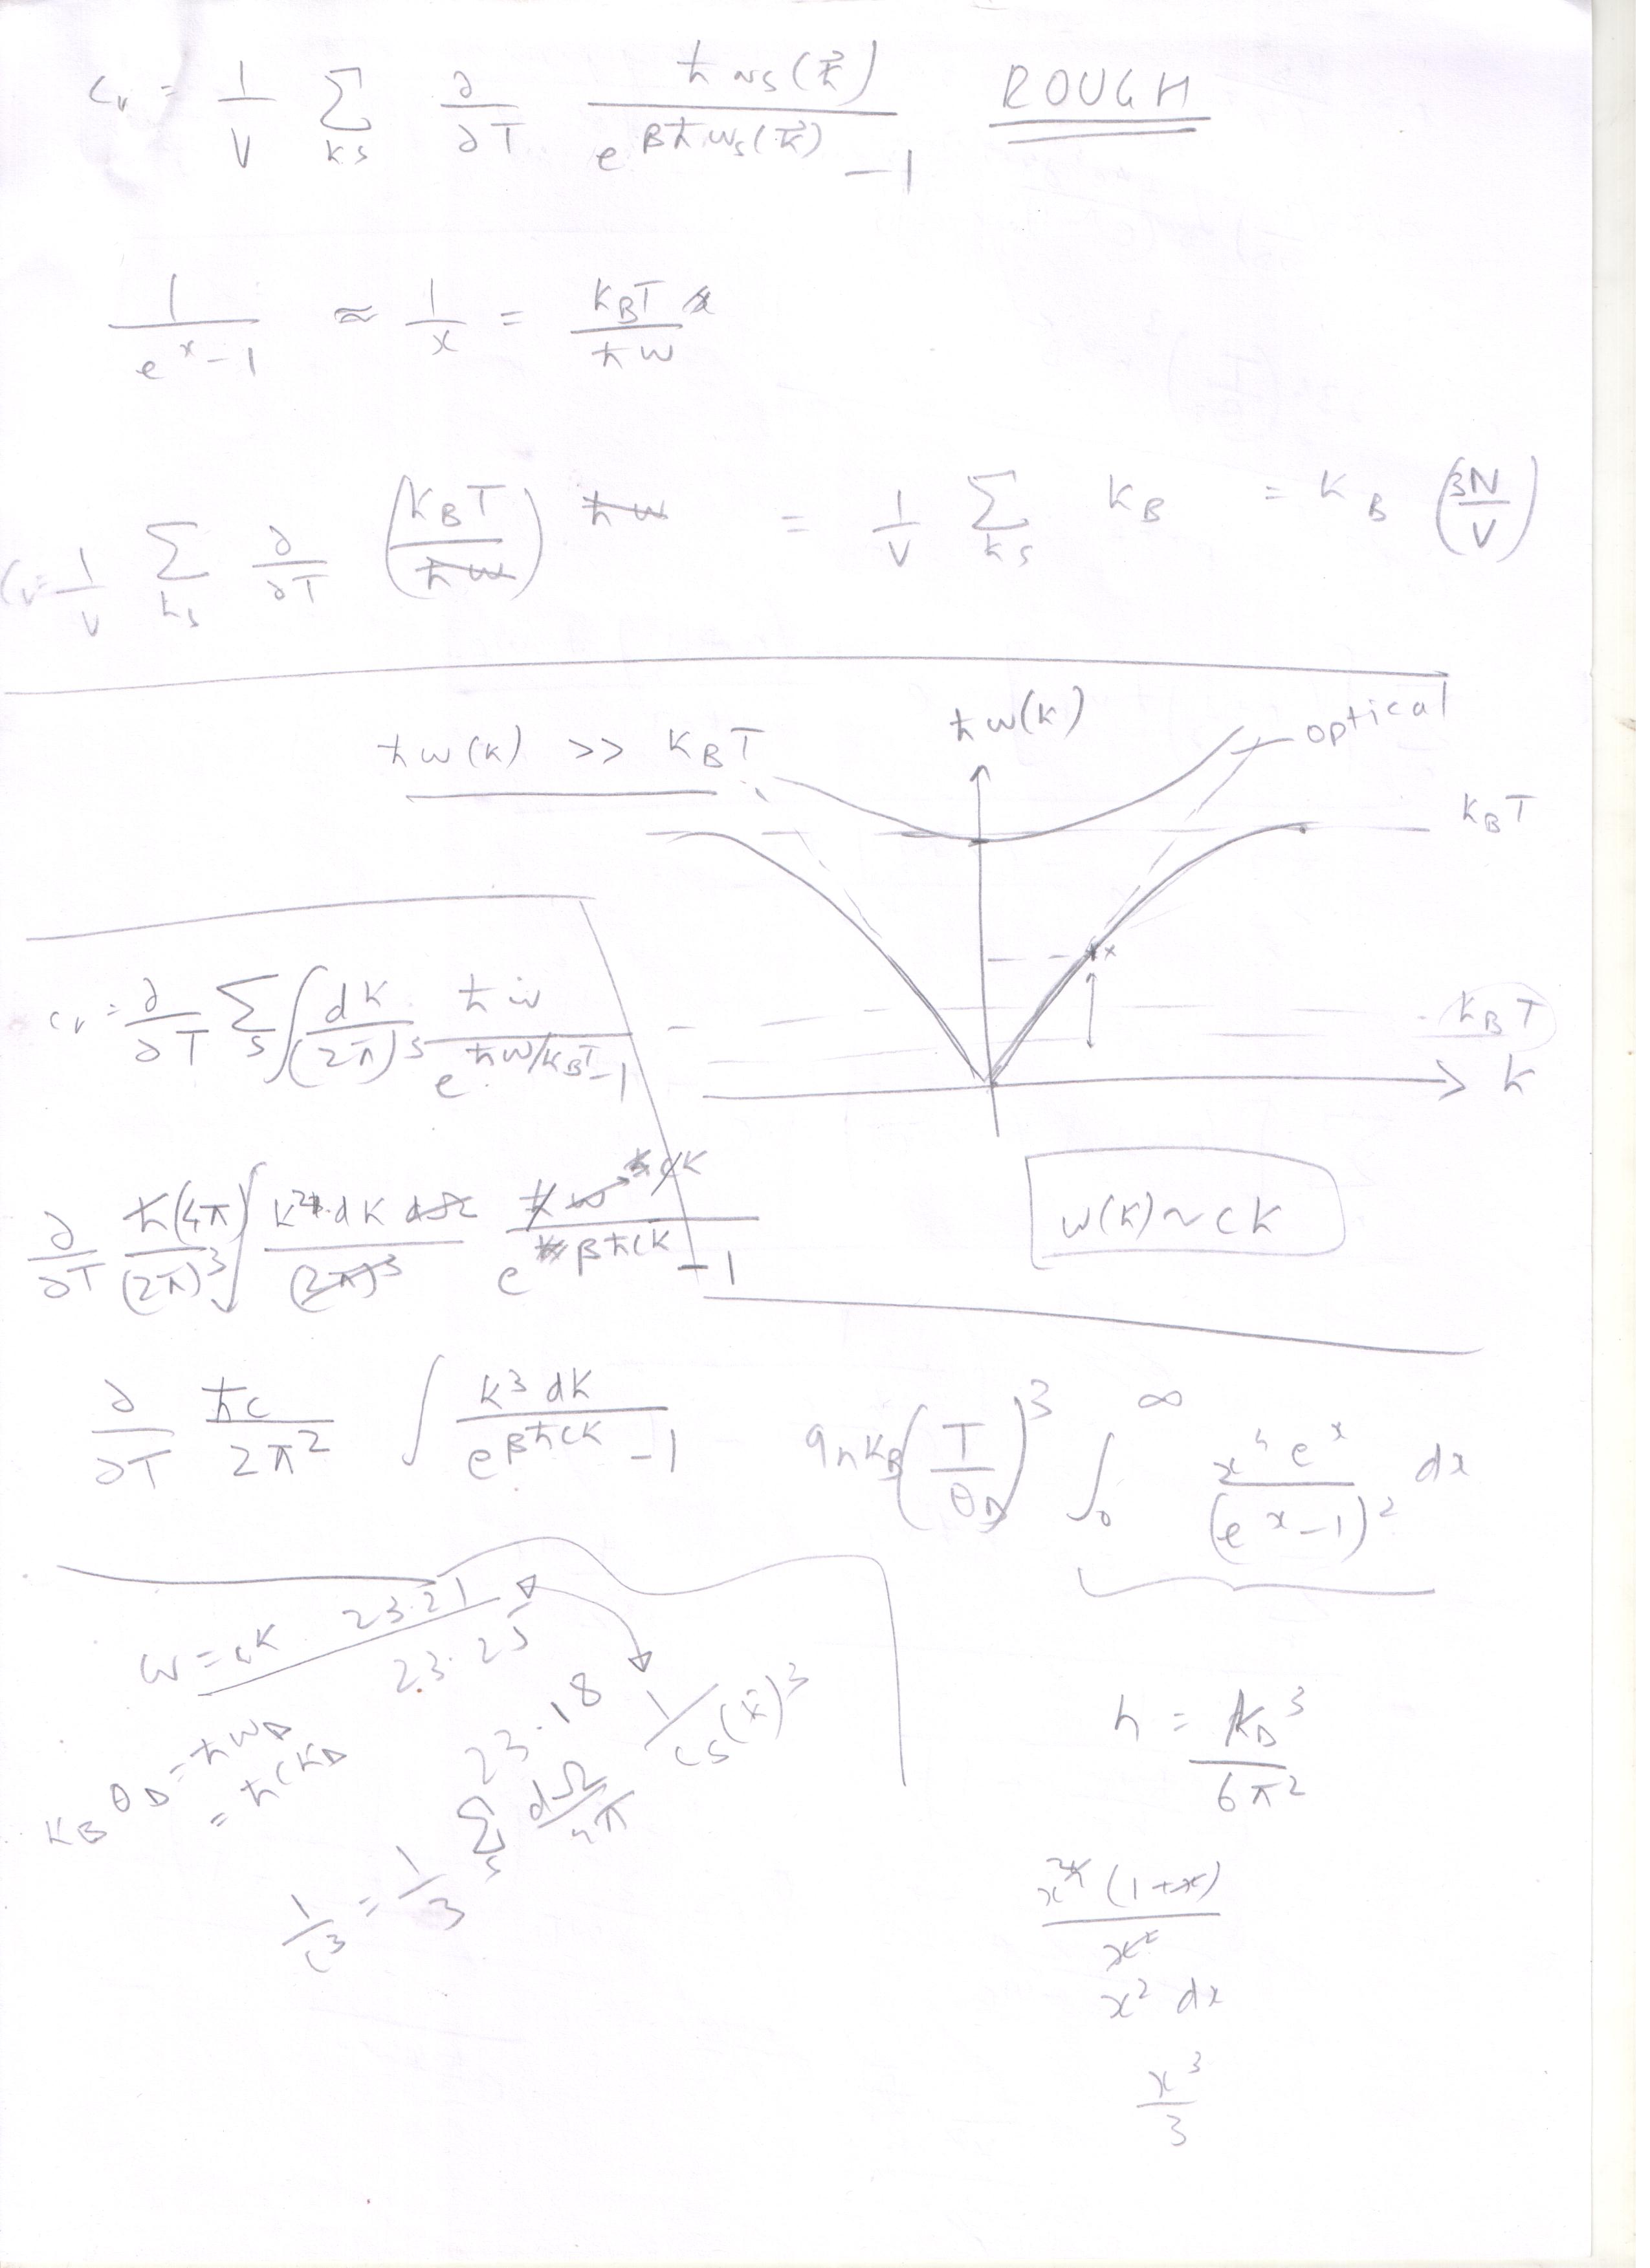 c_v = 1/V Σ_{ks} ∂/∂T ħω_s(k⃗) / (e^{βħω_s(k⃗)} − 1)
ROUGH
1/(e^x − 1) ≈ 1/x = k_BT/ħω
C_v = 1/V Σ_{ks} ∂/∂T (k_BT/ħω) ħω = 1/V Σ_{ks} k_B = k_B (3N/V)
ħω(k) >> k_BT
ħω(k)
optical
k_BT
k_BT
k
ω(k) ~ ck
c_v = ∂/∂T Σ_s ∫ dk/(2π)^3 ħω/(e^{ħω/k_BT} − 1)
∂/∂T ħ(4π)/(2π)^3 ∫ k^2 dk dΩ/(2π)^3 ħω → ck/(e^{βħck} − 1)
∂/∂T ħc/2π^2 ∫ k^3 dk/(e^{βħck} − 1)
9nk_B (T/θ_D)^3 ∫_0^∞ x^4 e^x/(e^x − 1)^2 dx
ω = ck 23.21
23.25
23.18
k_B θ_D = ħω_D
= ħck_D
1/c^3 = 1/3 Σ_s dΩ/4π 1/c_s(k̂)^3
n = k_D^3/6π^2
x^4 (1+x)/x^2
x^2 dx
x^3/3